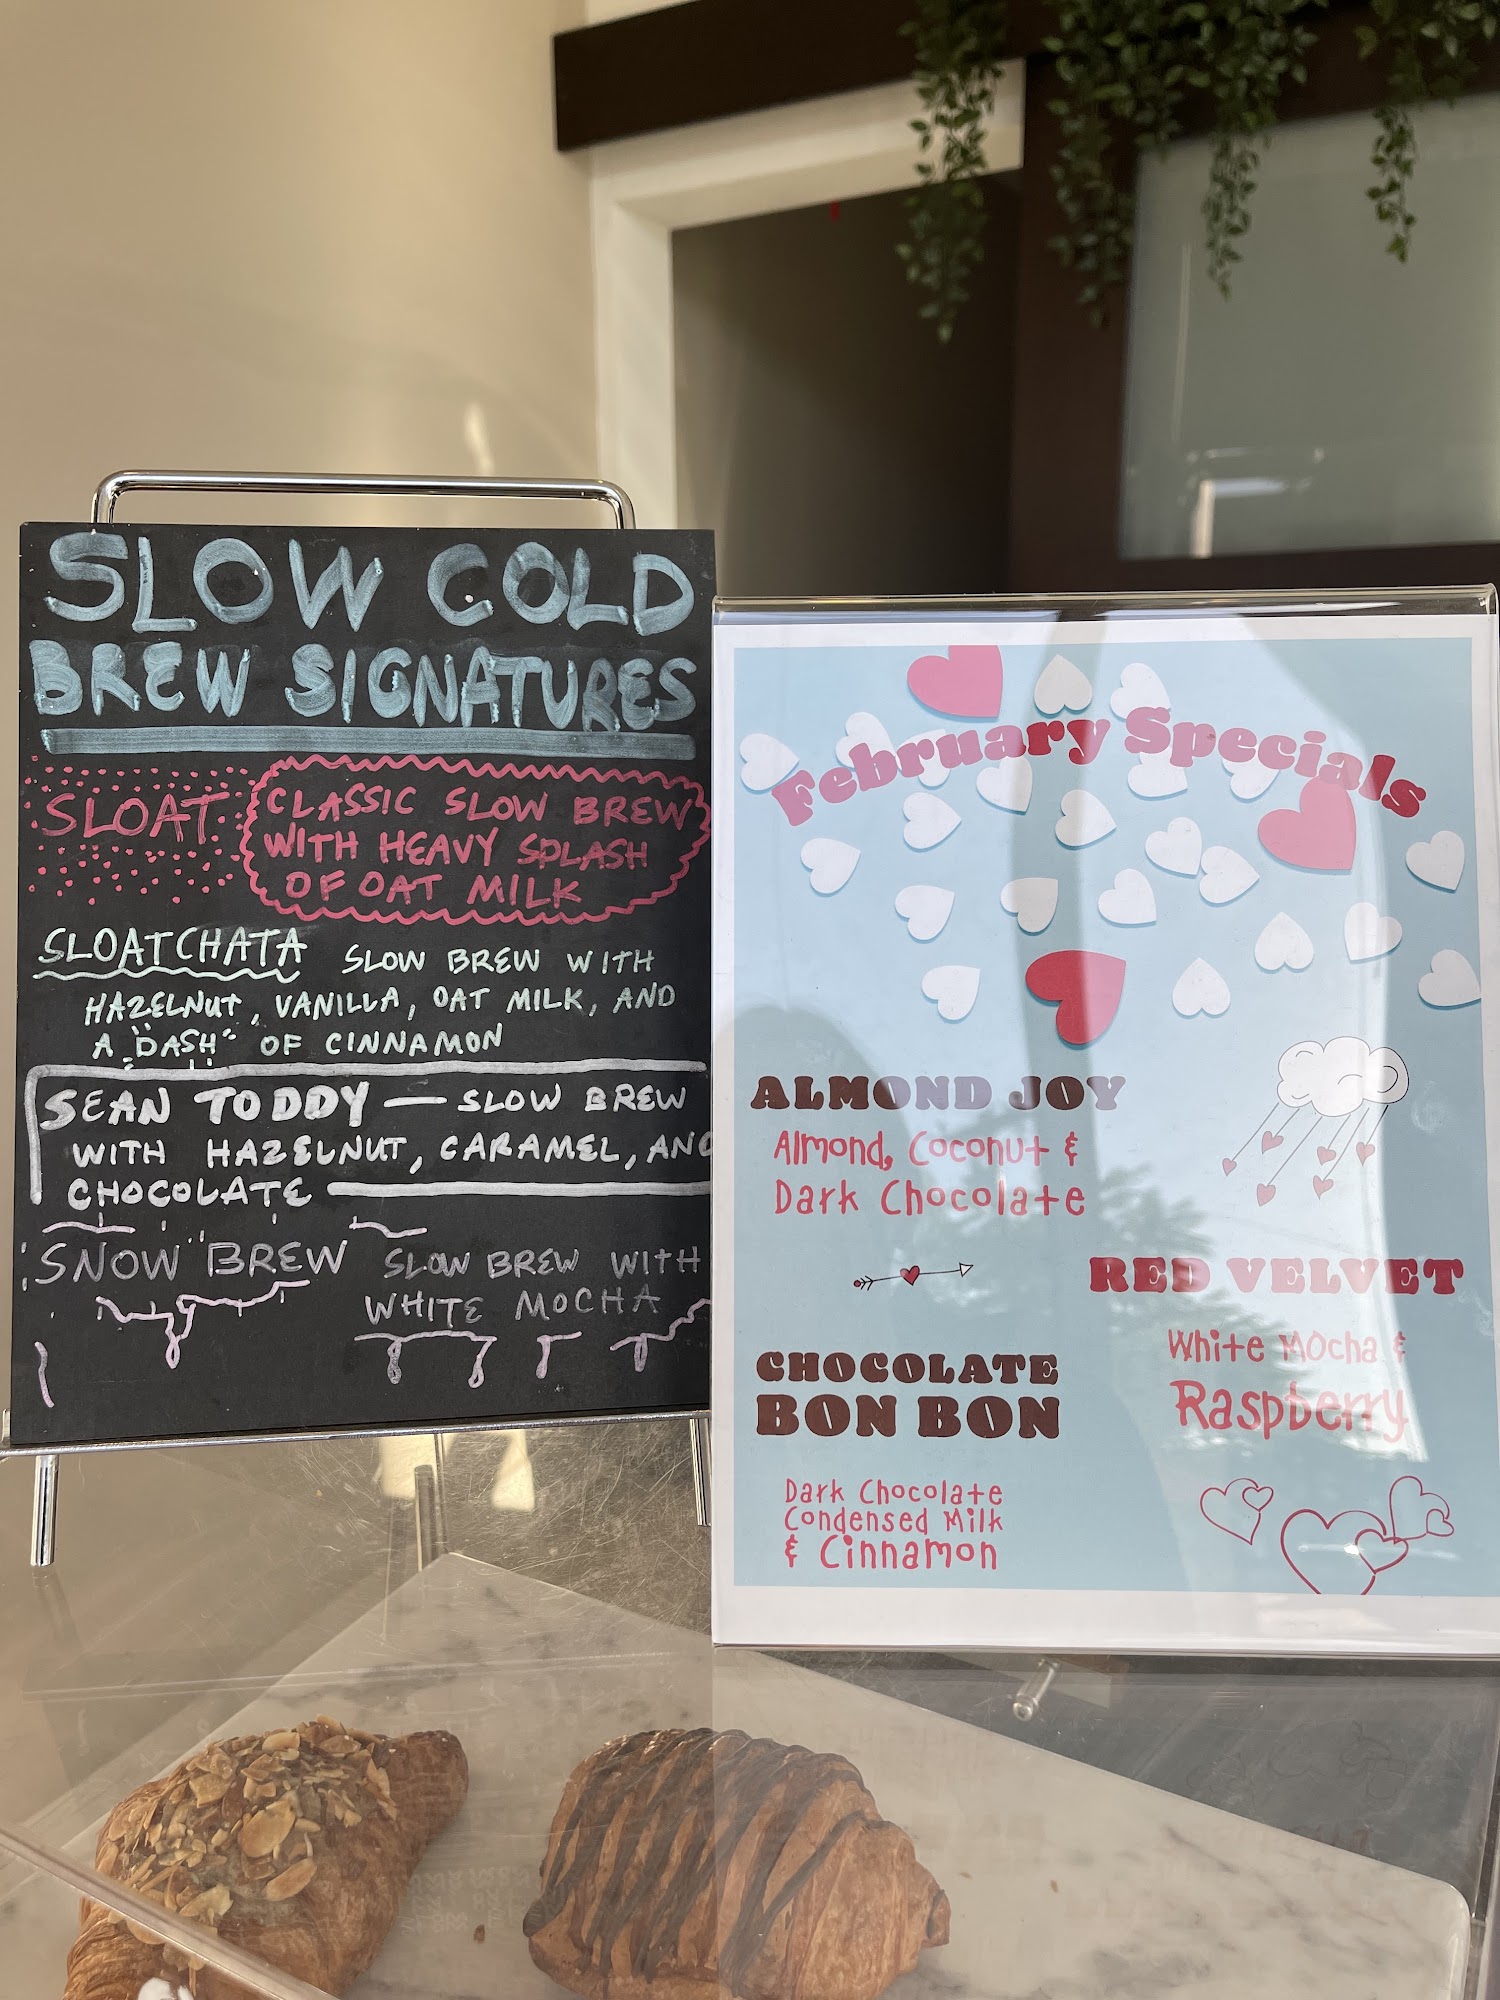 SLOW COLD
BREW SIGNATURES
SLOAT
CLASSIC SLOW BREW
WITH HEAVY SPLASH
OF OAT MILK
SLOATCHATA SLOW BREW WITH
HAZELNUT, VANILLA, OAT MILK, AND
A "DASH" OF CINNAMON
SEAN TODDY — SLOW BREW
WITH HAZELNUT, CARAMEL, AND
CHOCOLATE
SNOW BREW SLOW BREW WITH
WHITE MOCHA
February Specials
ALMOND JOY
Almond, Coconut &
Dark Chocolate
RED VELVET
White Mocha &
Raspberry
CHOCOLATE
BON BON
Dark Chocolate
Condensed Milk
& Cinnamon